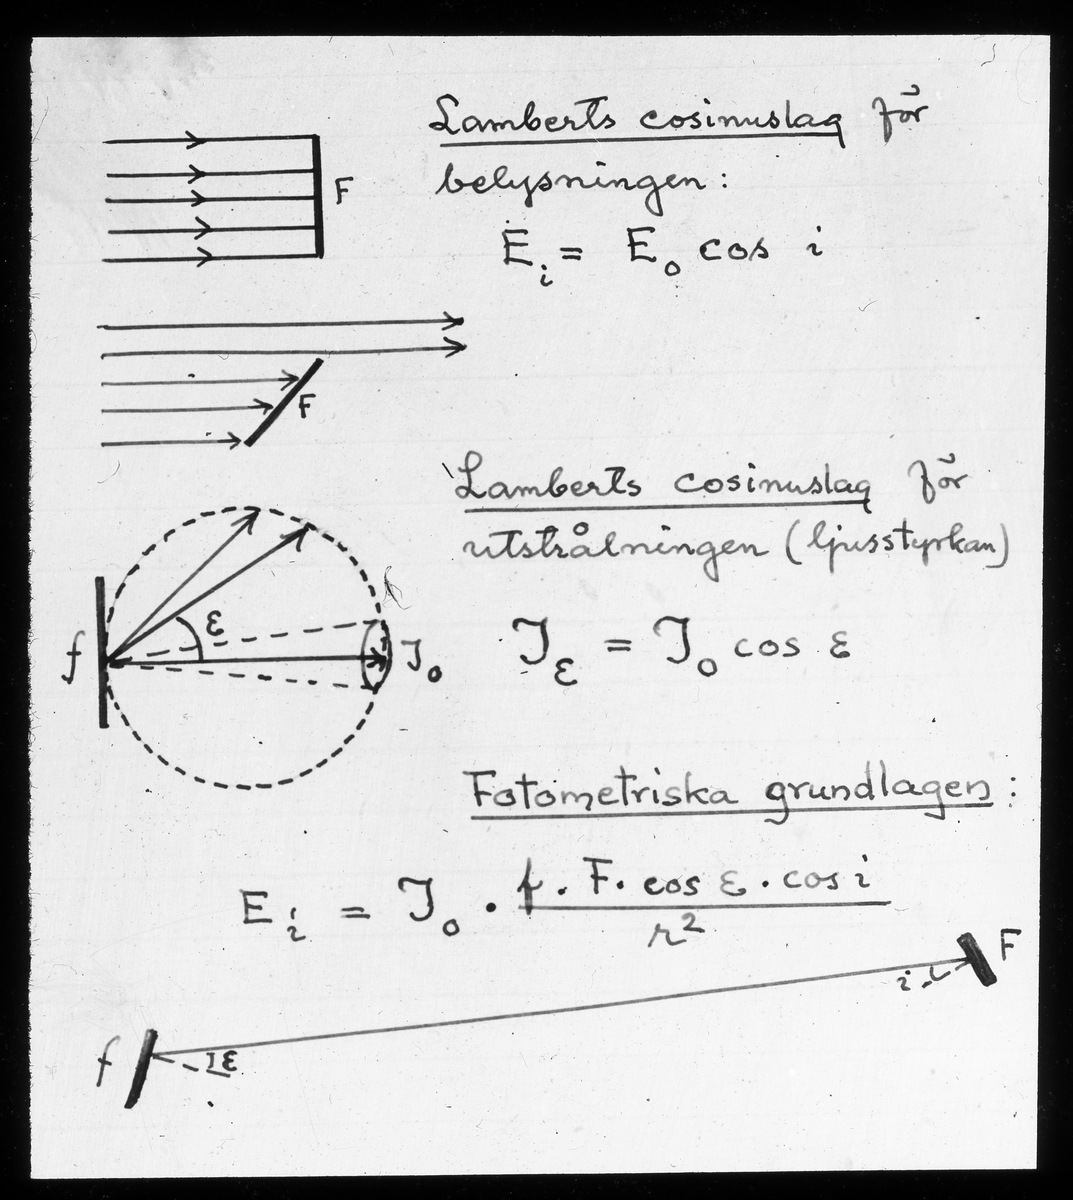 Lamberts cosinuslag för
F
belysningen:
E_i = E_o cos i
F
Lamberts cosinuslag för
utstrålningen (ljusstyrkan)
f ε J_o
J_ε = J_o cos ε
Fotometriska grundlagen:
E_i = J_o · f · F · cos ε · cos i / r²
F
i
f
ε